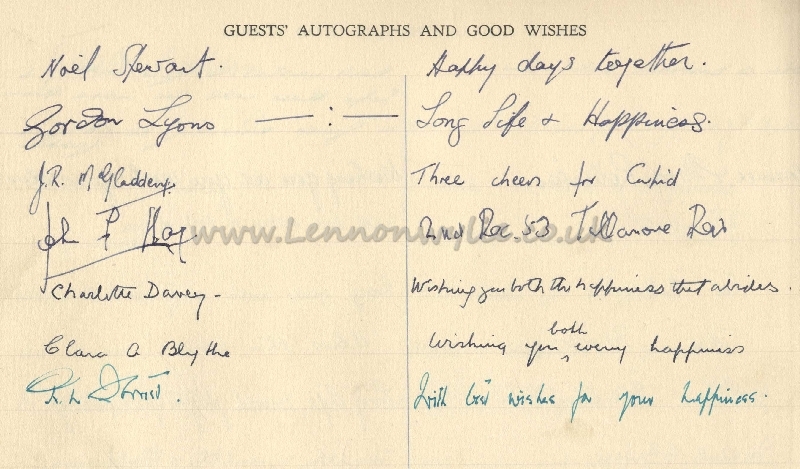 GUESTS' AUTOGRAPHS AND GOOD WISHES
Noel Stewart. Happy days together.
Gordon Lyons — : — Long Life & Happiness.
J.R. McGladdery. Three cheers for Cupid
John F 2nd Rec. '53
www.Lennonwylie.co.uk
Charlotte Davey - Wishing you both the happiness that abides.
Clara A Blythe Wishing you both every happiness
With best wishes for your happiness.